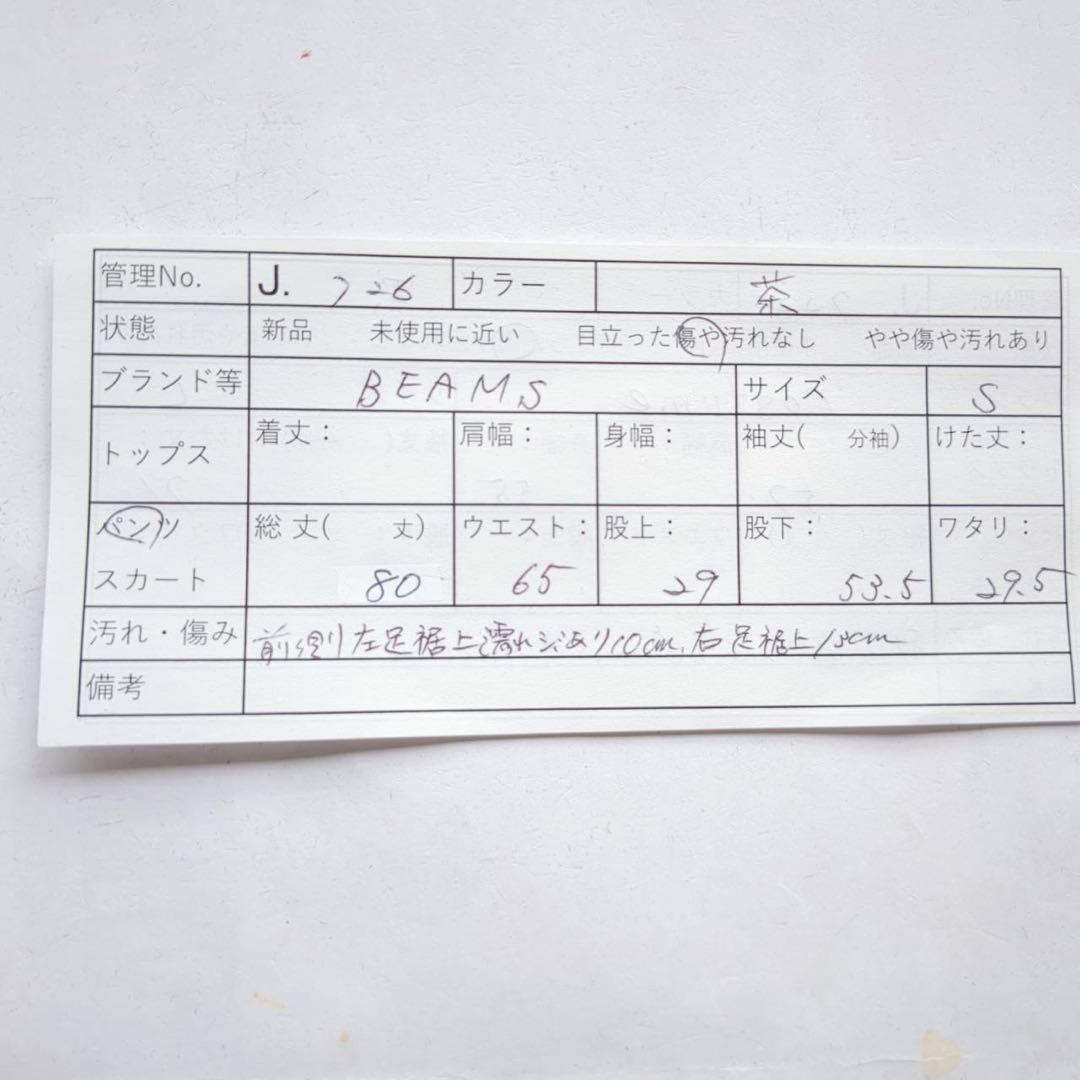 管理No. J. 726 カラー 茶
状態 新品 未使用に近い 目立った傷や汚れなし やや傷や汚れあり
ブランド等 BEAMS サイズ S
トップス 着丈： 肩幅： 身幅： 袖丈( 分袖) けた丈：
パンツ 総丈( 丈) ウエスト： 股上： 股下： ワタリ：
スカート 80 65 29 53.5 29.5
汚れ・傷み 前側 左足裾上濡れジミあり10cm、右足裾上15cm
備考